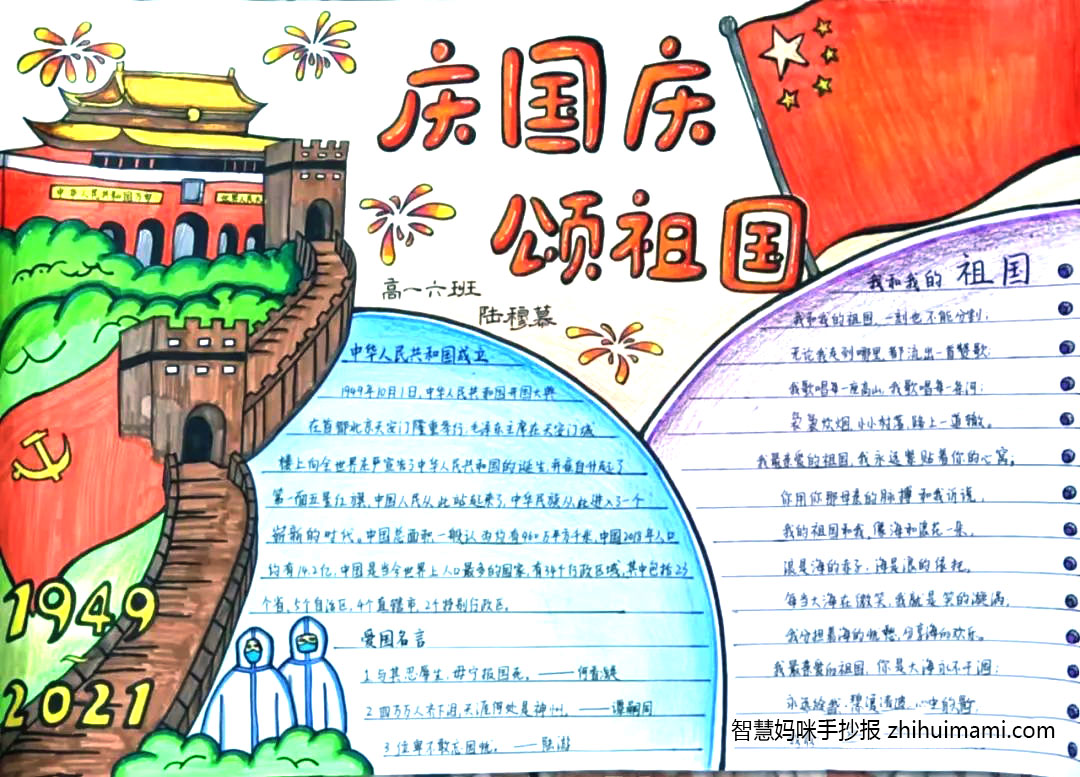 庆国庆
颂祖国
中华人民共和国万岁
世界人民大
高一六班
陆穆慕
1949
2021
中华人民共和国成立
1949年10月1日,中华人民共和国开国大典
在首都北京天安门隆重举行,毛泽东主席在天安门城
楼上向全世界庄严宣告了中华人民共和国的诞生,并亲自升起了
第一面五星红旗,中国人民从此站起来了,中华民族从此进入了一个
崭新的时代。中国总面积一般认为约有960万平方千米,中国2018年人口
约有14.2亿,中国是当今世界上人口最多的国家,有34个行政区域,其中包括23
个省,5个自治区,4个直辖市,2个特别行政区。
爱国名言
1 与其忍辱生,毋宁报国死。——何香凝
2 四万万人齐下泪,天涯何处是神州。——谭嗣同
3 位卑不敢忘国忧。——陆游
我和我的祖国
我和我的祖国,一刻也不能分割;
无论我走到哪里,都流出一首赞歌;
我歌唱每一座高山,我歌唱每一条河;
袅袅炊烟,小小村落,路上一道辙。
我最亲爱的祖国,我永远紧贴着你的心窝;
你用你那母亲的脉搏和我诉说。
我的祖国和我,像海和浪花一朵,
浪是海的赤子,海是浪的依托。
每当大海在微笑,我就是笑的漩涡,
我分担着海的忧愁,分享海的欢乐。
我最亲爱的祖国,你是大海永不干涸;
永远给我,碧浪清波,心中的歌
智慧妈咪手抄报 zhihuimami.com